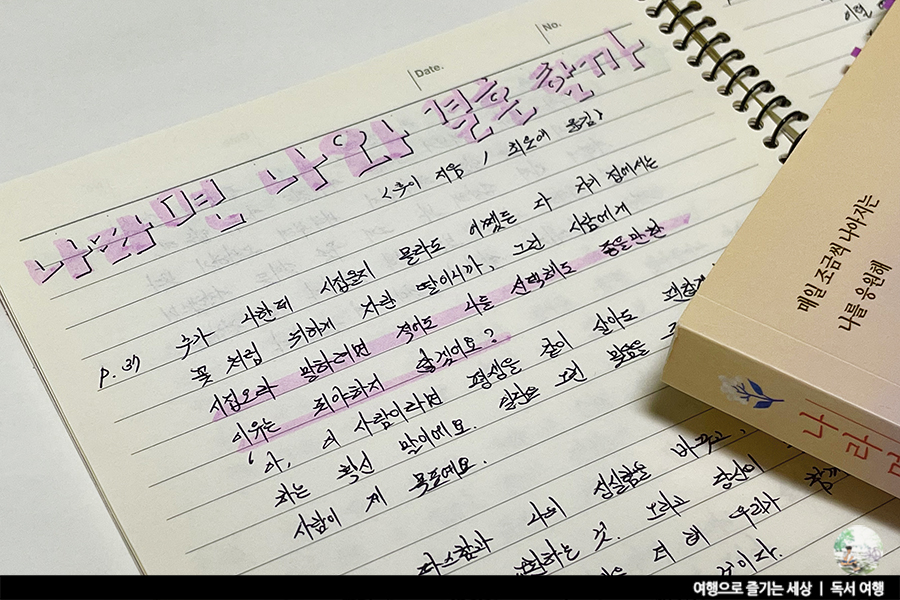 Date.
No.
나라면 나와 결혼할까
<후이 지음 / 최운에 옮김>
p.37 누가 나한테 시집올지 몰라도 어쨌든 다 자기 집에서는
꽃처럼 귀하게 자란 딸이니까, 그런 사람에게
시집오라 말하려면 적어도 나를 선택해도 좋을만한
이유는 되야하지 않겠어요?
'아, 이 사람이라면 평생을 같이 살아도 괜찮겠
라는 확신 말이에요. 일단은 그런 믿음을
사람이 제 목표에요.
따스함과 나의 성실함을 바꾸고,
하는 것. 그리고 당신이
더 해 우리가 함께
것이다.
이럴
매일 조금씩 나아지는
나를 응원해
나라면
여행으로 즐기는 세상 | 독서 여행